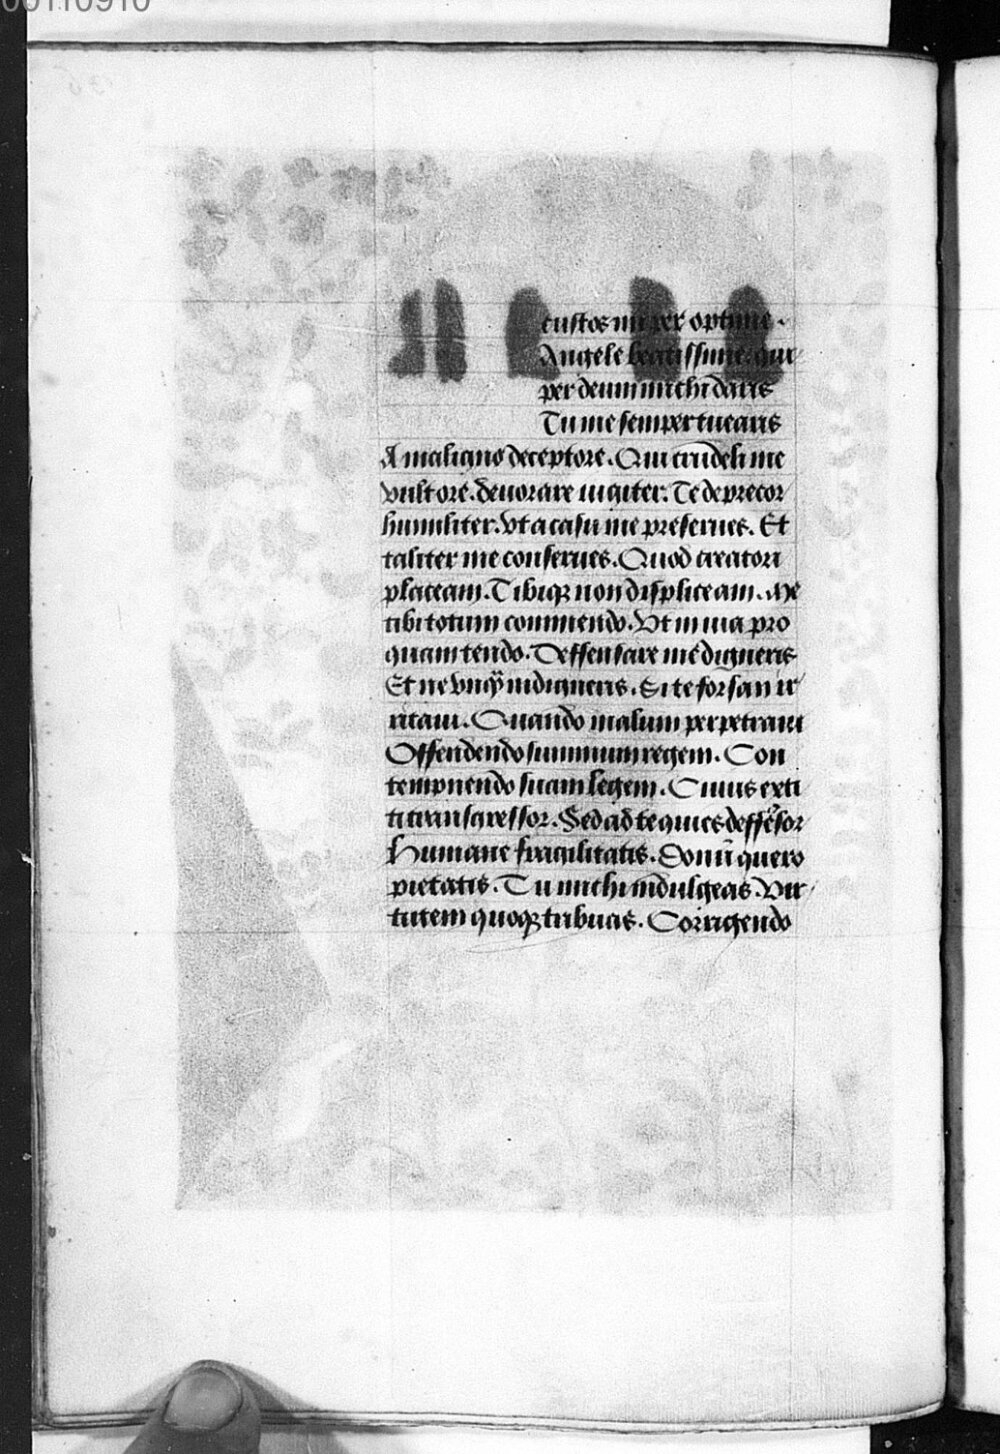 00110910
custos mi per optime.
Angele beatissime. qui
per deum michi daris
Tu me semper tuearis
A maligno deceptore. Qui crudeli me
vultore. deuorare iugiter. Te deprecor
humiliter. Vt a casu me preserues. Et
taliter me conserues. Quod creatori
placeam. Tibiqꝫ non displiceam. Me
tibi totum commendo. Vt in via pro
quam tendo. Deffensare me digneris
Et ne vnqꝫ indigneris. Si te forsan ir
ritaui. Quando malum perpetraui
Offendendo summum regem. Con
tempnendo suam legem. Cuius exti
ti transgressor. Sed ad te quies deffēsor
Humane fragilitatis. Donū quero
pietatis. Tu michi indulgeas. Vir
tutem quoqꝫ tribuas. Corrigendo